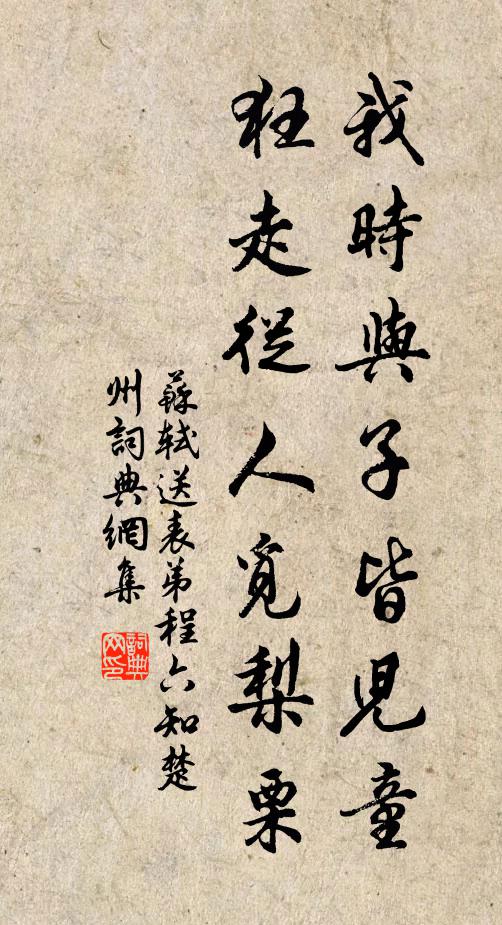 我時與子皆兒童
狂走從人覓梨栗
蘇軾送表弟程六知楚
州詞典網集
詞典網印